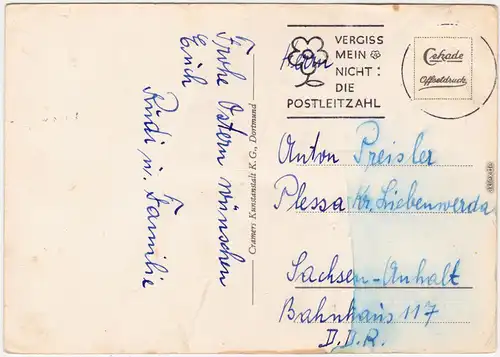 Frohe Ostern wünschen
Euch
Rudi u. Familie
Cramers Kunstanstalt K.G., Dortmund
VERGISS
MEIN
NICHT:
DIE
POSTLEITZAHL
Cekade
Offsetdruck
Herrn
Anton Preisler
Plessa Kr. Liebenwerda
Sachsen-Anhalt
Bahnhaus 117
D.D.R.